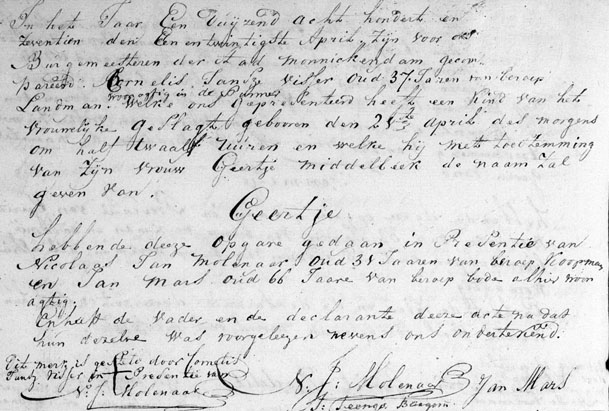 In het Jaar Een duijzend acht hondert en
Zeventien den Een en twintigste April, zijn voor ons
Burgemeesteren der stad monnickendam gecom
pareerd Cornelis Jansz visser oud 37 Jaren van beroep
woonagtig in de Purmer
Landman. Welke ons gepresenteerd heeft een Kind van het
vrouwelijke geslagt gebooren den April des morgens
om half twaalf Uuren en welke hij met toestemming
van Zijn vrouw Geertje middelbeek de naam Zal
geven van.
Geertje
hebbende deeze opgave gedaan in Presentie van
Nicolaas Jan Molenaar oud Jaaren van beroep Koopman
en Jan Mars oud 66 Jaare van beroep bode alhier woon
agtig.
En heeft de vader en de declarante deeze acte na dat
hun dezelve was voorgeleezen nevens ons onderteekend.
Dit merk is gesteld door Cornelis
Jansz visser in Presentie van
N. J. Molenaar
N. J: Molenaar Jan Mars
Burgem.